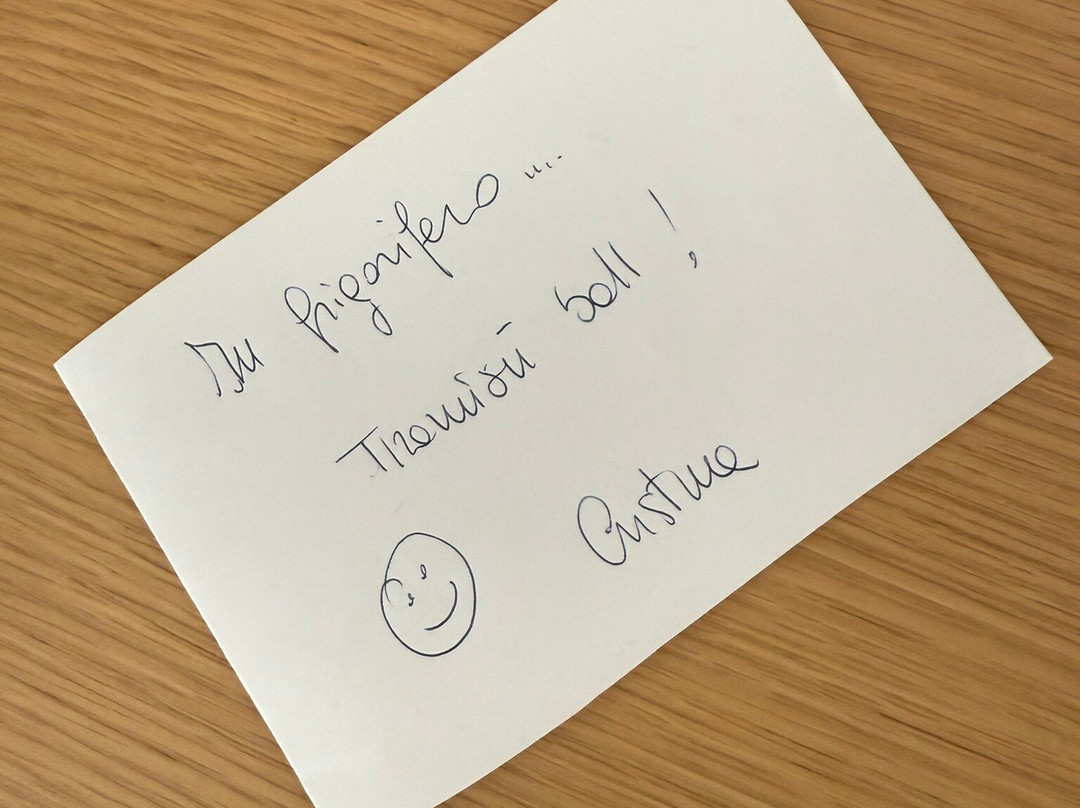 In frigorifero ...
Tiramisù ball !
Cristina